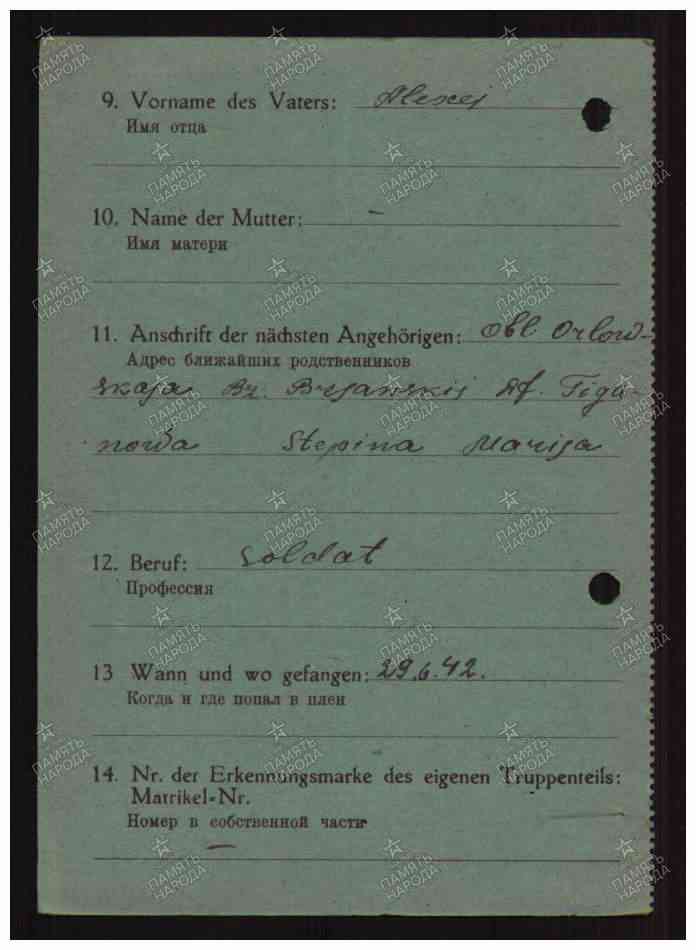 9. Vorname des Vaters: Alexej
Имя отца
10. Name der Mutter: –
Имя матери
11. Anschrift der nächsten Angehörigen: Obl Orlow-
Адрес ближайших родственников
skaja Bz. Brjanskij Df. Tiga-
nowa Stepina Marija
12. Beruf: Soldat
Профессия
13 Wann und wo gefangen: 29.6.42.
Когда и где попал в плен
14. Nr. der Erkennungsmarke des eigenen Truppenteils: –
Matrikel-Nr.
Номер в собственной части
–
ПАМЯТЬ НАРОДА